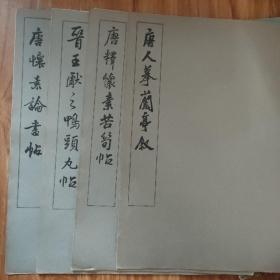 唐人摹蘭亭敘
唐釋懷素苦筍帖
晉王獻之鴨頭丸帖
唐懷素論書帖